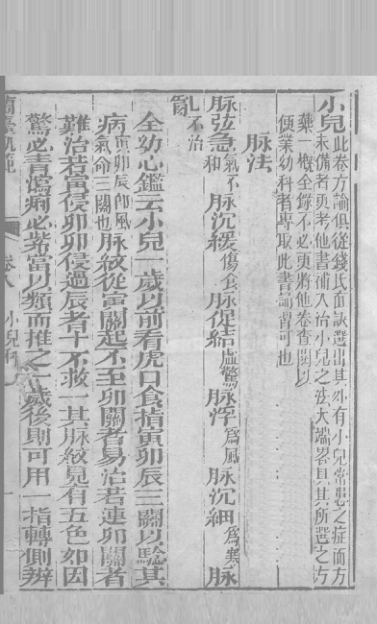 小兒此卷方論俱從錢氏面訣選出其外有小兒常患之症而方
未備者更考他書補入治小兒之法大端畧具其所選之方
藥一槩全錄不必更將他卷查閱以
便業幼科者專取此書誦習可也
脉法
脉弦急氣不和 脉沉緩傷食 脉促結虛驚 脉浮爲風 脉沉細爲寒 脉
亂不治
全幼心鑑云小兒一歲以前看虎口食指寅卯辰三關以驗其
病寅卯辰卽風氣命三關也脉紋從寅關起不至卯關者易治若連卯關者
難治若寅侵卯卯侵過辰者十不救一其脉紋見有五色如因
驚必青瀉痢必紫當以類而推之一歲後則可用一指轉側辨
蘭臺軌範 卷八 小兒